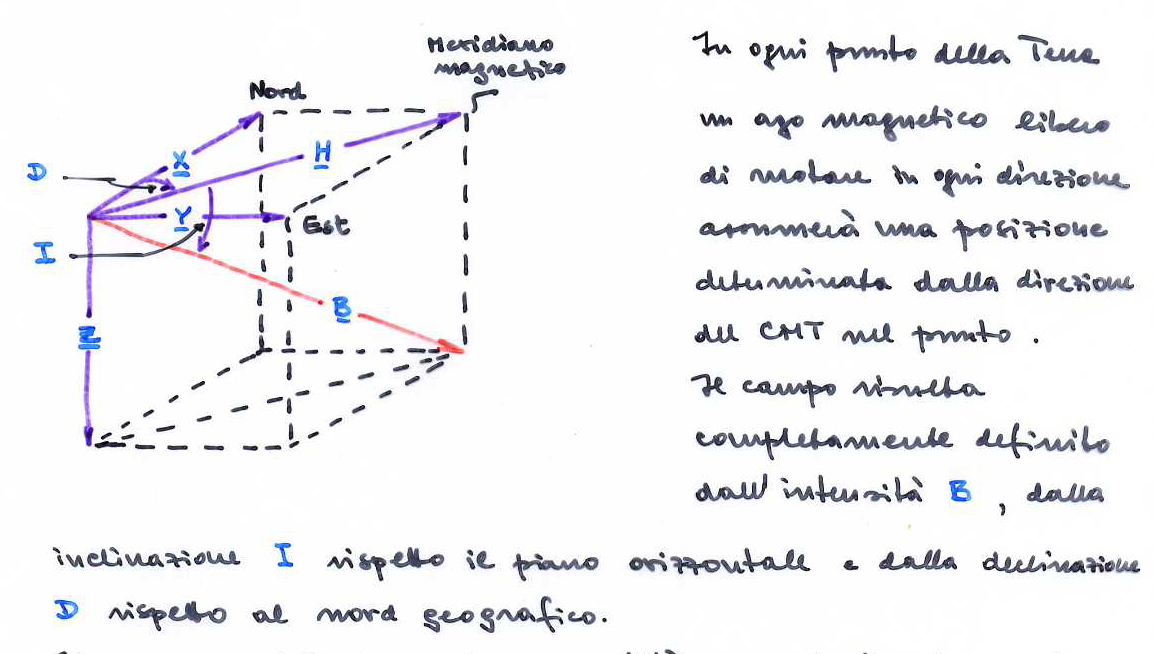 Meridiano
magnetico
Nord
X
H
D
Y
Est
I
B
Z
In ogni punto della Terra
un ago magnetico libero
di ruotare in ogni direzione
assumerà una posizione
determinata dalla direzione
del CMT nel punto.
Il campo risulta
completamente definito
dall'intensità B, dalla
inclinazione I rispetto il piano orizzontale e dalla declinazione
D rispetto al nord geografico.